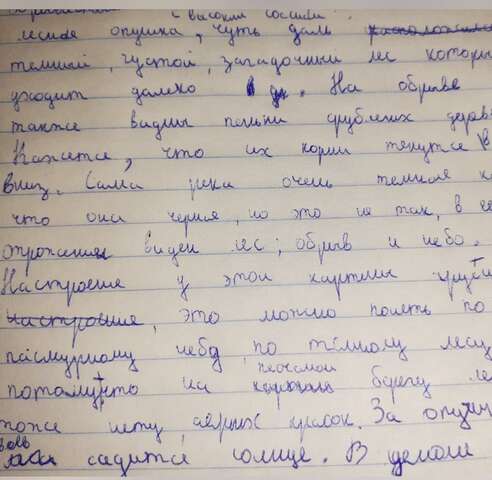 с высокими соснами
лесная опушка, чуть даль
темный, густой, загадочный лес которы
уходит далеко в. На обрыве
также видны пеньки срубленых дерев
Кажется, что их корни тянутся в
вниз. Сама река очень темная к
что она черная, но это не так, в её
отражении виден лес; обрыв и небо.
Настроение у этой картины груст
настроение, это можно понять по
пасмурному небу, по тёмному лесу
песчаном
потому что на берегу ле
тоже нету, ярких красок. За опуш
садится солнце. В целом